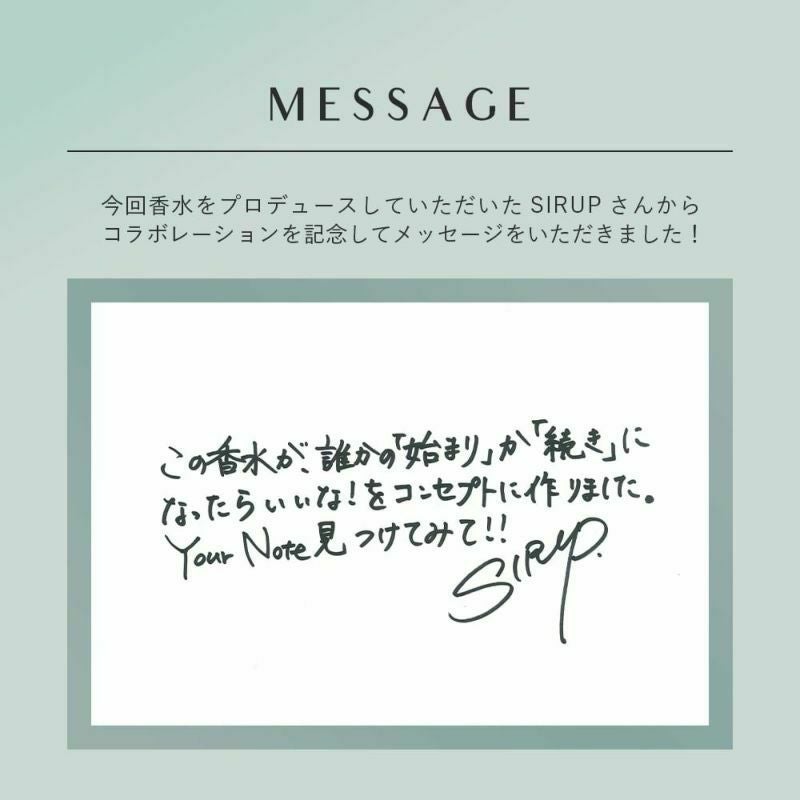 MESSAGE
今回香水をプロデュースしていただいた SIRUP さんから
コラボレーションを記念してメッセージをいただきました！
この香水が、誰かの「始まり」か「続き」に
なったらいいな!をコンセプトに作りました。
Your Note見つけてみて!!
SIRUP.